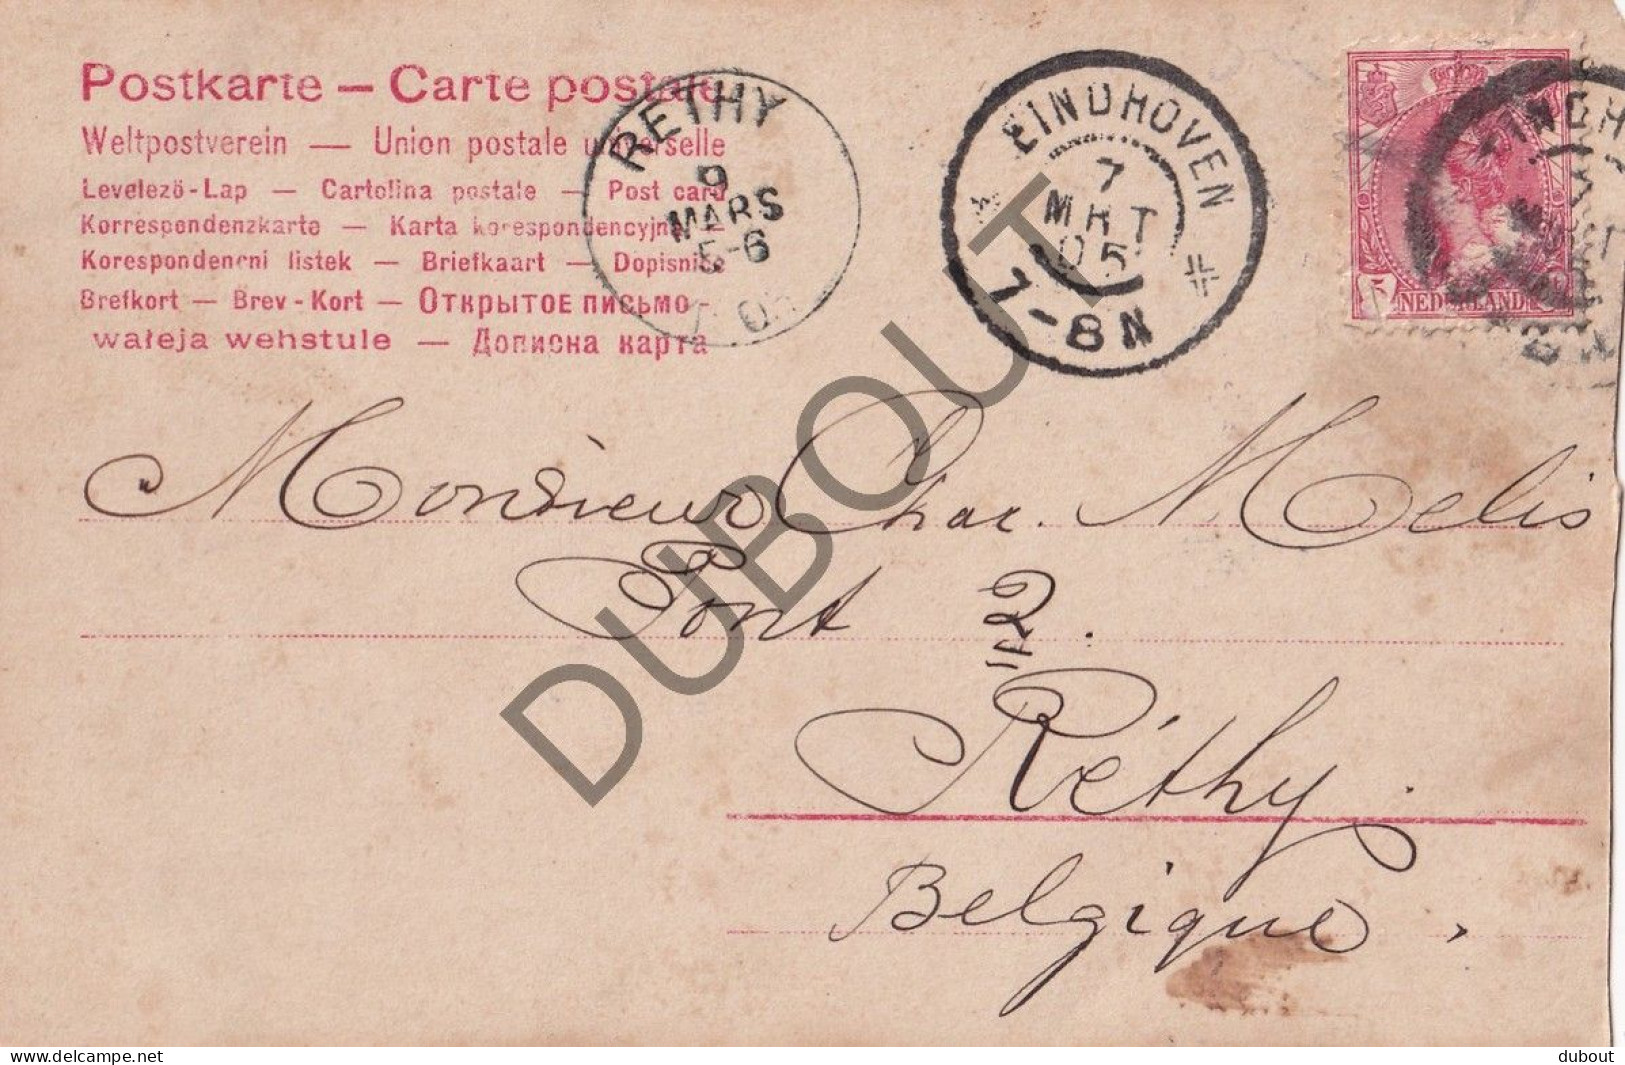 Postkarte — Carte postale
Weltpostverein — Union postale universelle
Levelező-Lap — Cartolina postale — Post card
Korrespondenzkarte — Karta korespondencyjna —
Korespondencni listek — Briefkaart — Dopisnice
Brefkort — Brev-Kort — Открытое письмо -
wałeja wehstule — Дописна карта
RETHY
9
MARS
5-6
EINDHOVEN
7
MRT
05
7-8N
NEDERLAND
Monsieur Char. Melis
Pont 2.
Réthy.
Belgique.
DUBOUT
www.delcampe.net
dubout